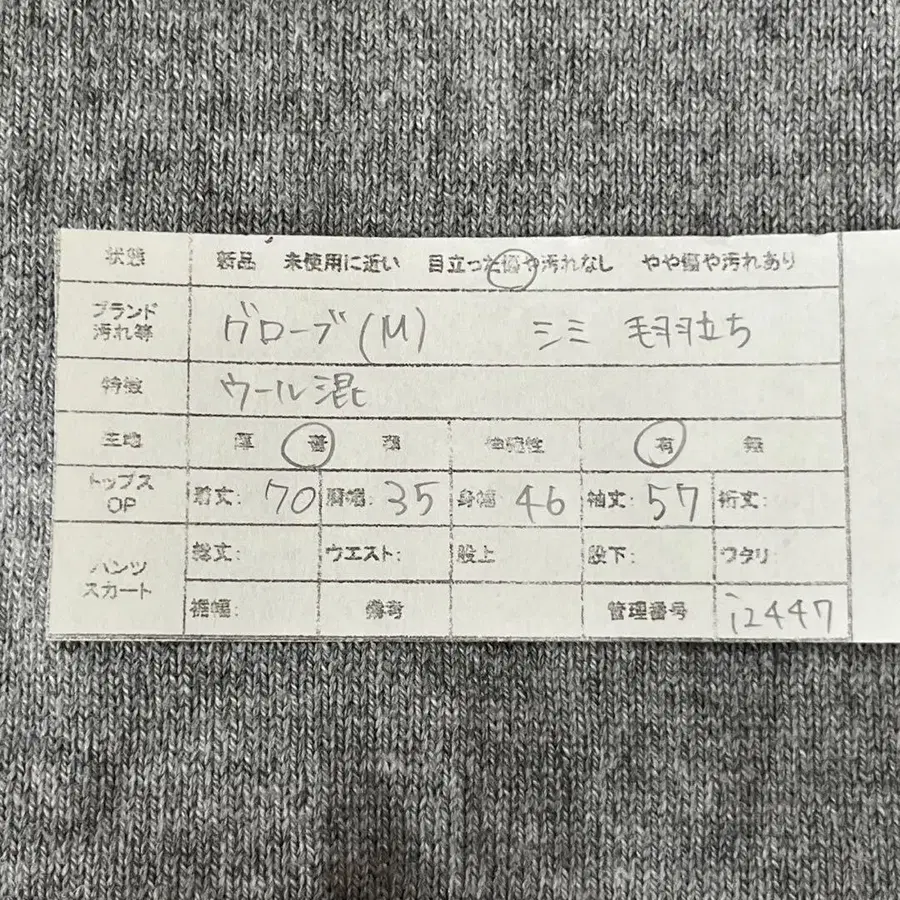 状態 新品 未使用に近い 目立った傷や汚れなし やや傷や汚れあり
ブランド
汚れ等 グローブ(M) シミ 毛羽立ち
特徴 ウール混
生地 薄 普 厚 伸縮性 有 無
トップス
OP 着丈: 70 肩幅: 35 身幅 46 袖丈: 57 裄丈:
パンツ
スカート 総丈: ウエスト: 股上 股下: ワタリ
裾幅: 備考 管理番号 i2447